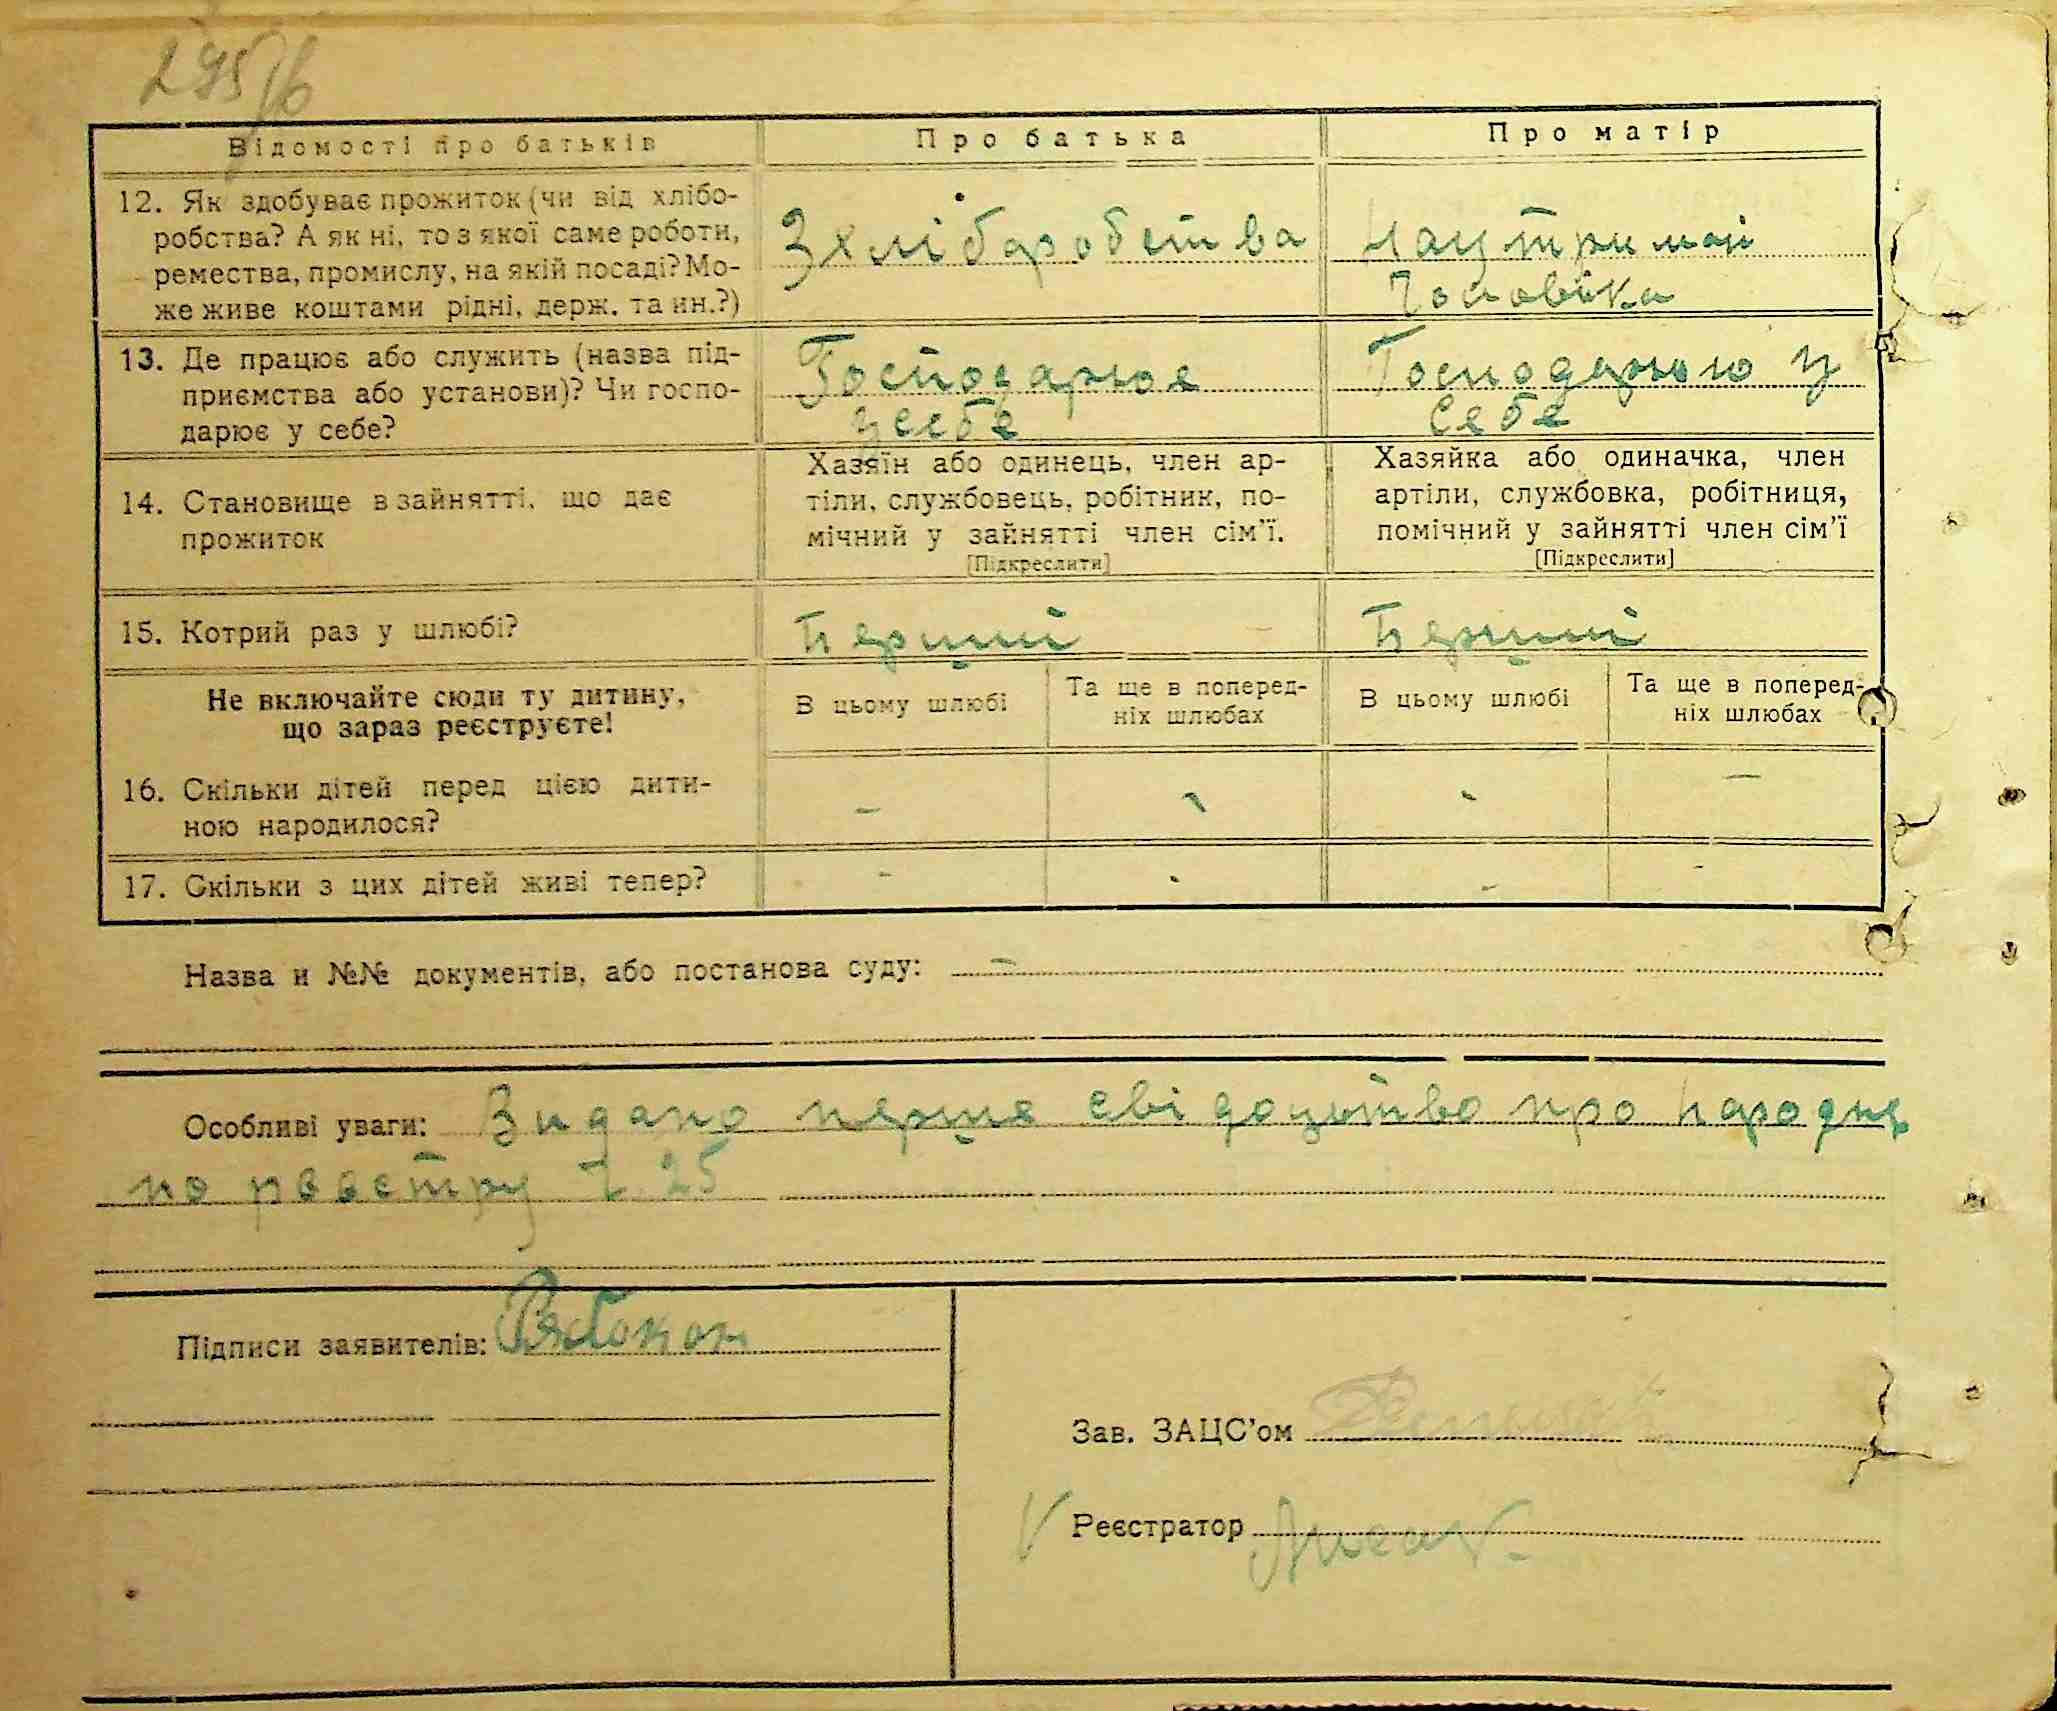 Відомості про батьків
Про батька
Про матір
12. Як здобуває прожиток (чи від хлібо-
робства? А як ні, то з якої саме роботи,
ремества, промислу, на якій посаді? Мо-
же живе коштами рідні, держ. та ин.?)
Зхліборобства
Наутримані
Чоловіка
13. Де працює або служить (назва під-
приємства або установи)? Чи госпо-
дарює у себе?
Господарює
усебе
Господарюю у
себе
14. Становище в зайнятті, що дає
прожиток
Хазяїн або одинець, член ар-
тіли, службовець, робітник, по-
мічний у зайнятті член сім'ї.
[Підкреслити]
Хазяйка або одиначка, член
артіли, службовка, робітниця,
помічний у зайнятті член сім'ї
[Підкреслити]
15. Котрий раз у шлюбі?
Перший
Перший
Не включайте сюди ту дитину,
що зараз реєструєте!
В цьому шлюбі
Та ще в поперед-
ніх шлюбах
В цьому шлюбі
Та ще в поперед-
ніх шлюбах
16. Скільки дітей перед цією дити-
ною народилося?
- - - -
17. Скільки з цих дітей живі тепер?
- - - -
Назва и №№ документів, або постанова суду: -
Особливі уваги: Видано перше свідоцьтво про народже
по реєстру ч. 25
Підписи заявителів: Рябокон
Зав. ЗАЦС'ом
Реєстратор